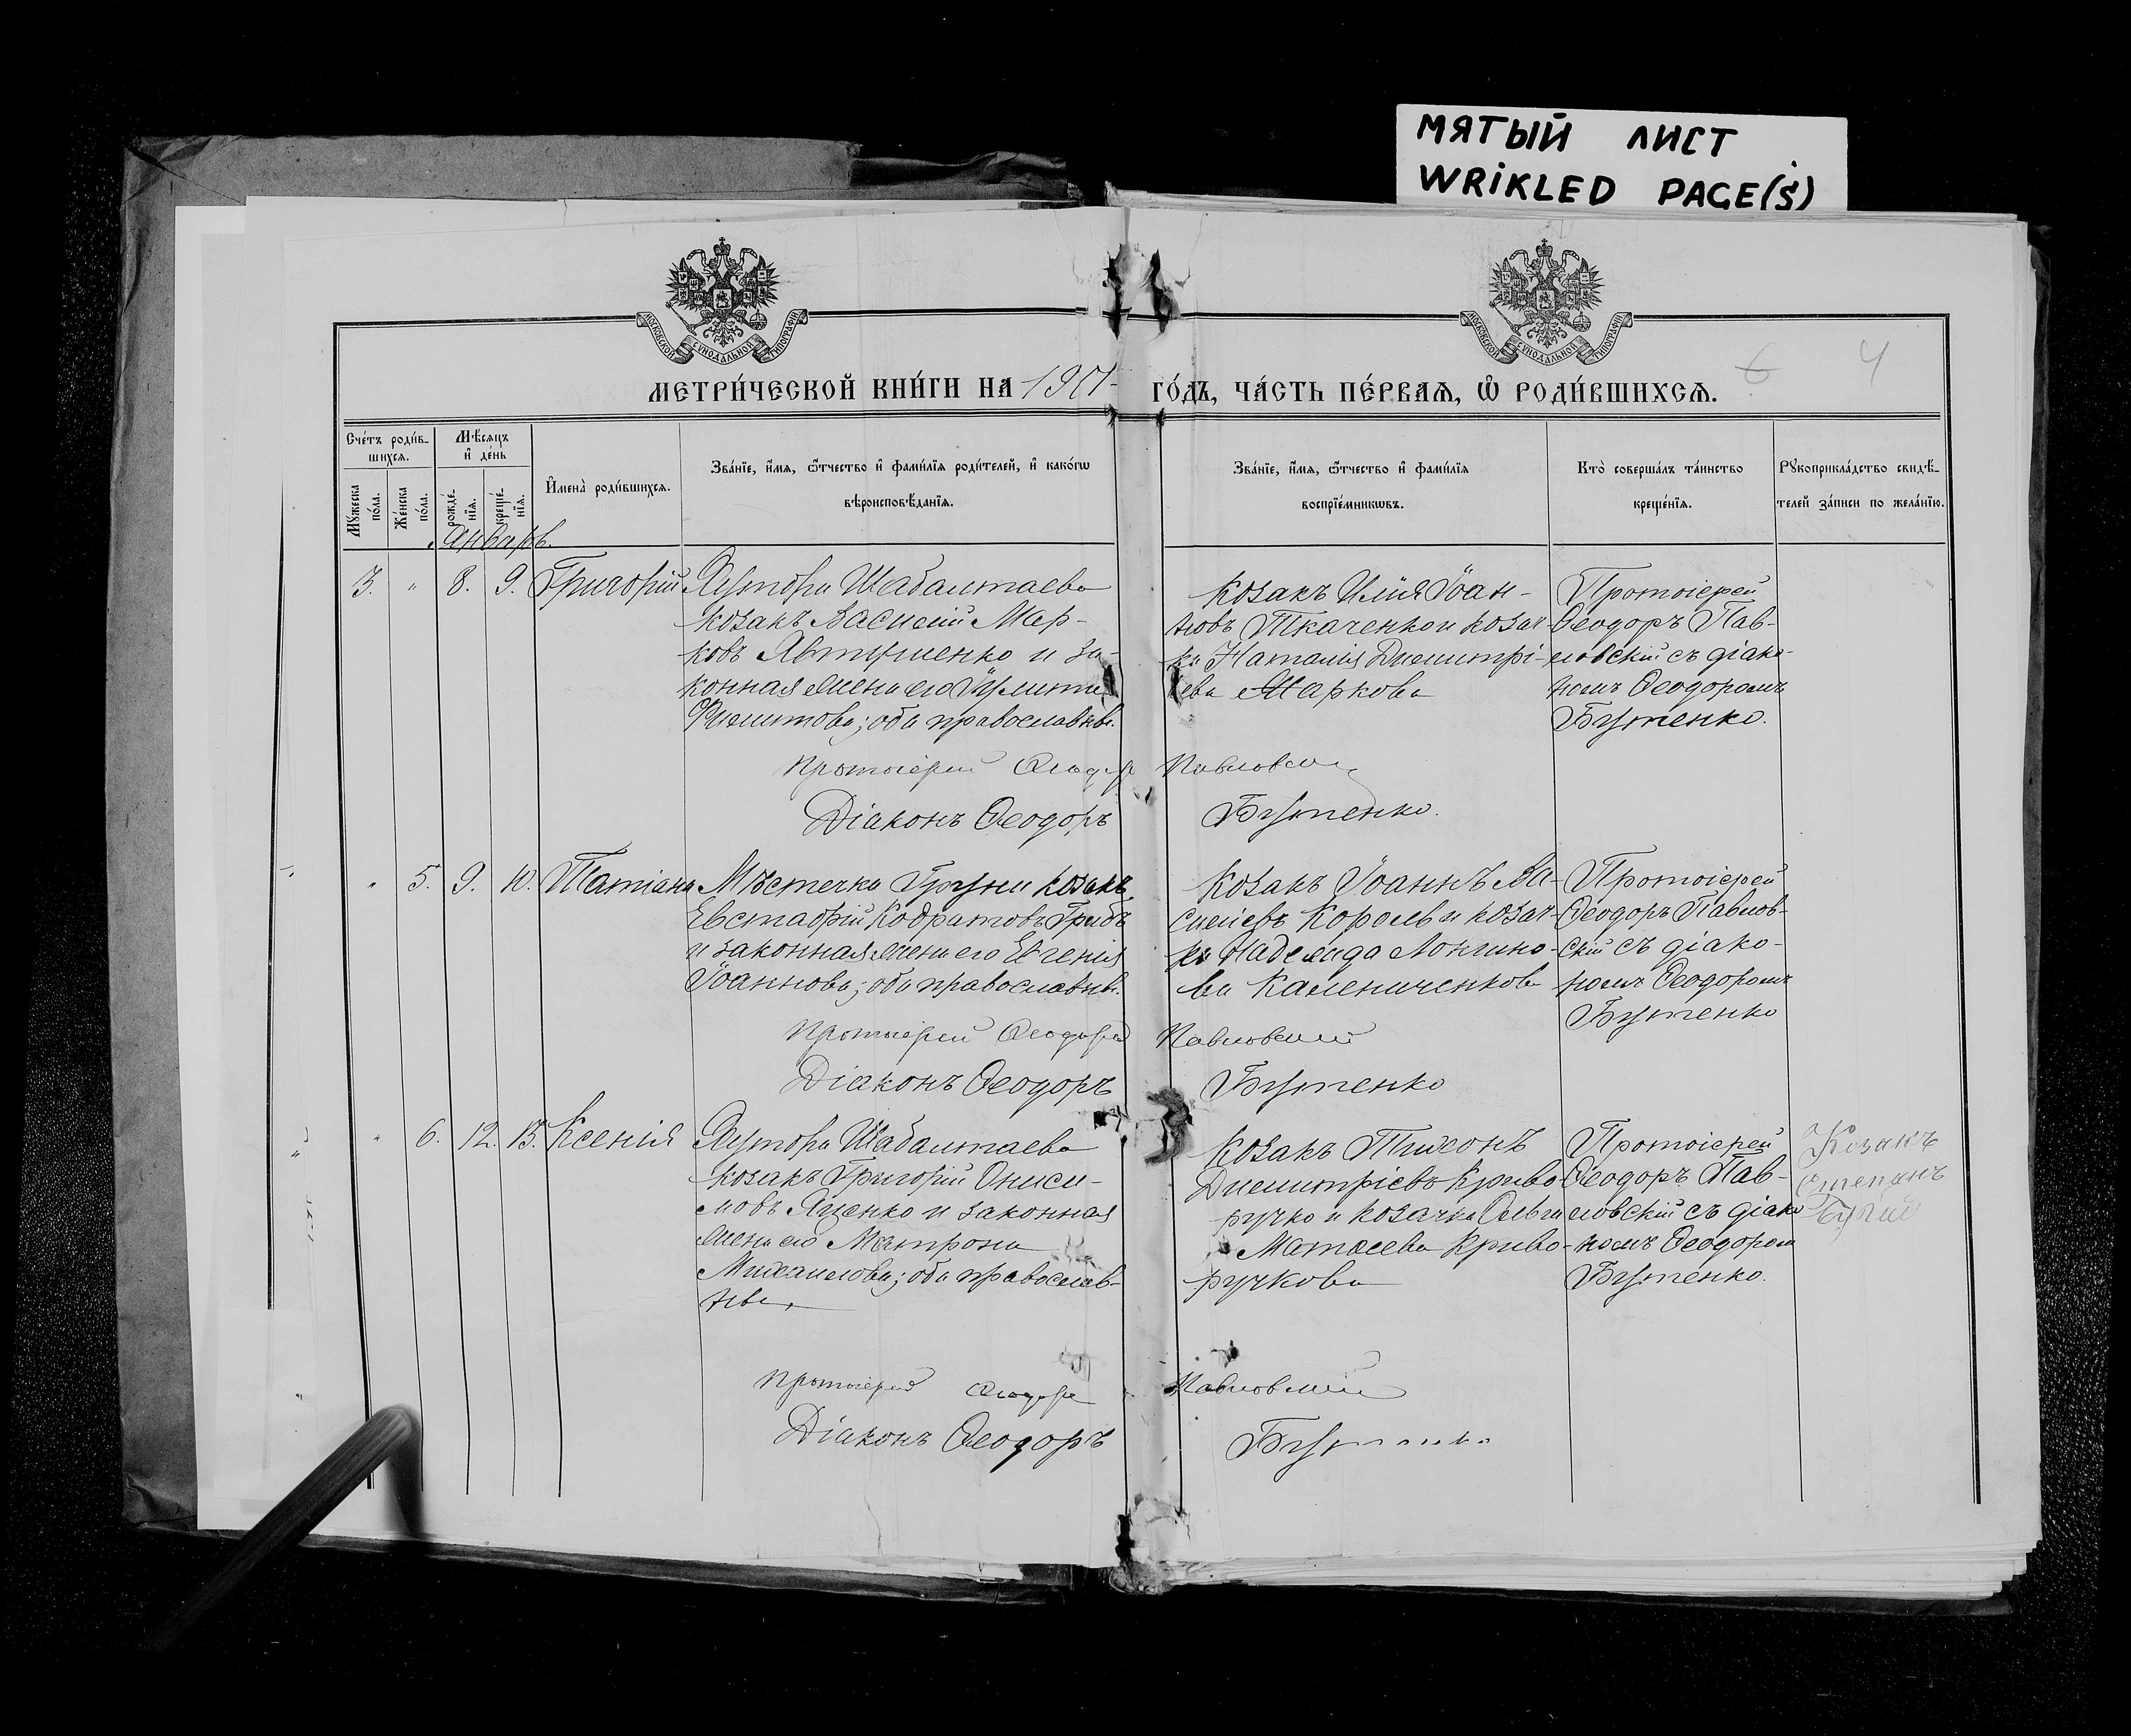 МЯТЫЙ ЛИСТ
WRIKLED PAGE(S)
МОСКОВСКОЙ СѴНОДАЛЬНОЙ ТИПОГРАФІИ
МОСКОВСКОЙ СѴНОДАЛЬНОЙ ТИПОГРАФІИ
6 4
МЕТРИ́ЧЕСКОЙ КНИ́ГИ НА ГО́ДЪ, ЧА́СТЬ ПЕ́РВАѦ, Ѡ҆ РОДИ́ВШИХСѦ.
Сче́тъ роди́в-
шихсѧ.
Мꙋ́жеска
по́ла.
Же́нска
по́ла.
Мѣ́сѧцъ
и҆ де́нь
рожде́-
нїѧ.
креще́-
нїѧ.
И҆мена̀ роди́вшихсѧ.
Зва́нїе, и҆́мѧ, ѻ҆́тчество и҆ фами́лїѧ роди́телей, и҆ како́гѡ
вѣроисповѣ́данїѧ.
Зва́нїе, и҆́мѧ, ѻ҆́тчество и҆ фами́лїѧ
воспрїе́мникѡвъ.
Кто̀ соверша́лъ та́инство
креще́нїѧ.
Рꙋкоприкла́дство свидѣ́-
телей за́писи по жела́нїю.
Январь.
3. " 8. 9. Григорій
Хутора Шабалтаева
козакъ Василій Мар-
ковъ Явтушенко и за-
конная жена его Іулита
Филиппова; оба православные.
козакъ Илія Іоан-
новъ Ткаченко и козач-
ка Наталія Димитрі-
ева Маркова
Протоіерей
Ѳеодоръ Пав-
ловскій съ діако-
номъ Ѳеодоромъ
Бутенко.
Протоіерей Ѳеодоръ Павловскій
Діаконъ Ѳеодоръ Бутенко.
" 5. 9. 10. Татіана
Мѣстечка Груни козакъ
Евстафій Кодратовъ Грибъ
и законная жена его Евгенія
Іоаннова; оба православные.
Козакъ Іоаннъ
Король и козач-
ка Надежда Лонгино-
ва Камениченкова
Протоіерей
Ѳеодоръ Павлов-
скій съ діако-
номъ Ѳеодоромъ
Бутенко
Протоіерей Ѳеодоръ Павловскій
Діаконъ Ѳеодоръ Бутенко
" 6. 12. 13. Ксенія
Хутора Шабалтаева
козакъ Григорій Ониси-
мовъ Яценко и законная
жена его Матрона
Михаилова; оба православ-
ные.
Козакъ Тихонъ
Димитріевъ Криво
ручко и козачка Ольга
Матѳеева Криво-
ручкова
Протоіерей
Ѳеодоръ Пав-
ловскій съ діако
номъ Ѳеодоромъ
Бутенко.
Козакъ
Степанъ
Протоіерей Ѳеодоръ Павловскій
Діаконъ Ѳеодоръ Бутенко